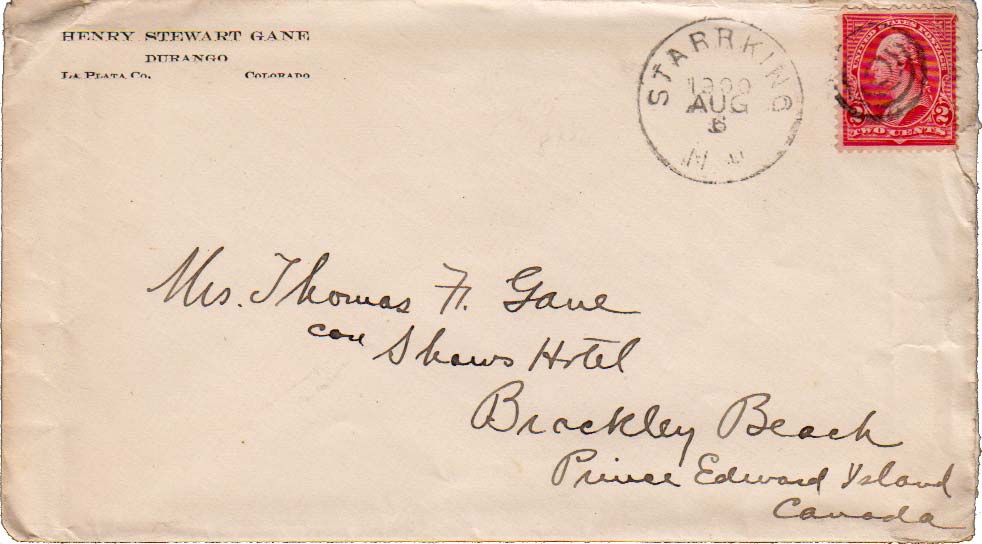 HENRY STEWART GANE
DURANGO
LA PLATA CO. COLORADO
STARRKING
1900
AUG
6
UNITED STATES POSTAGE
2 2
TWO CENTS
Mrs. Thomas F. Gane
care Shaws Hotel
Brackley Beach
Prince Edward Island
Canada